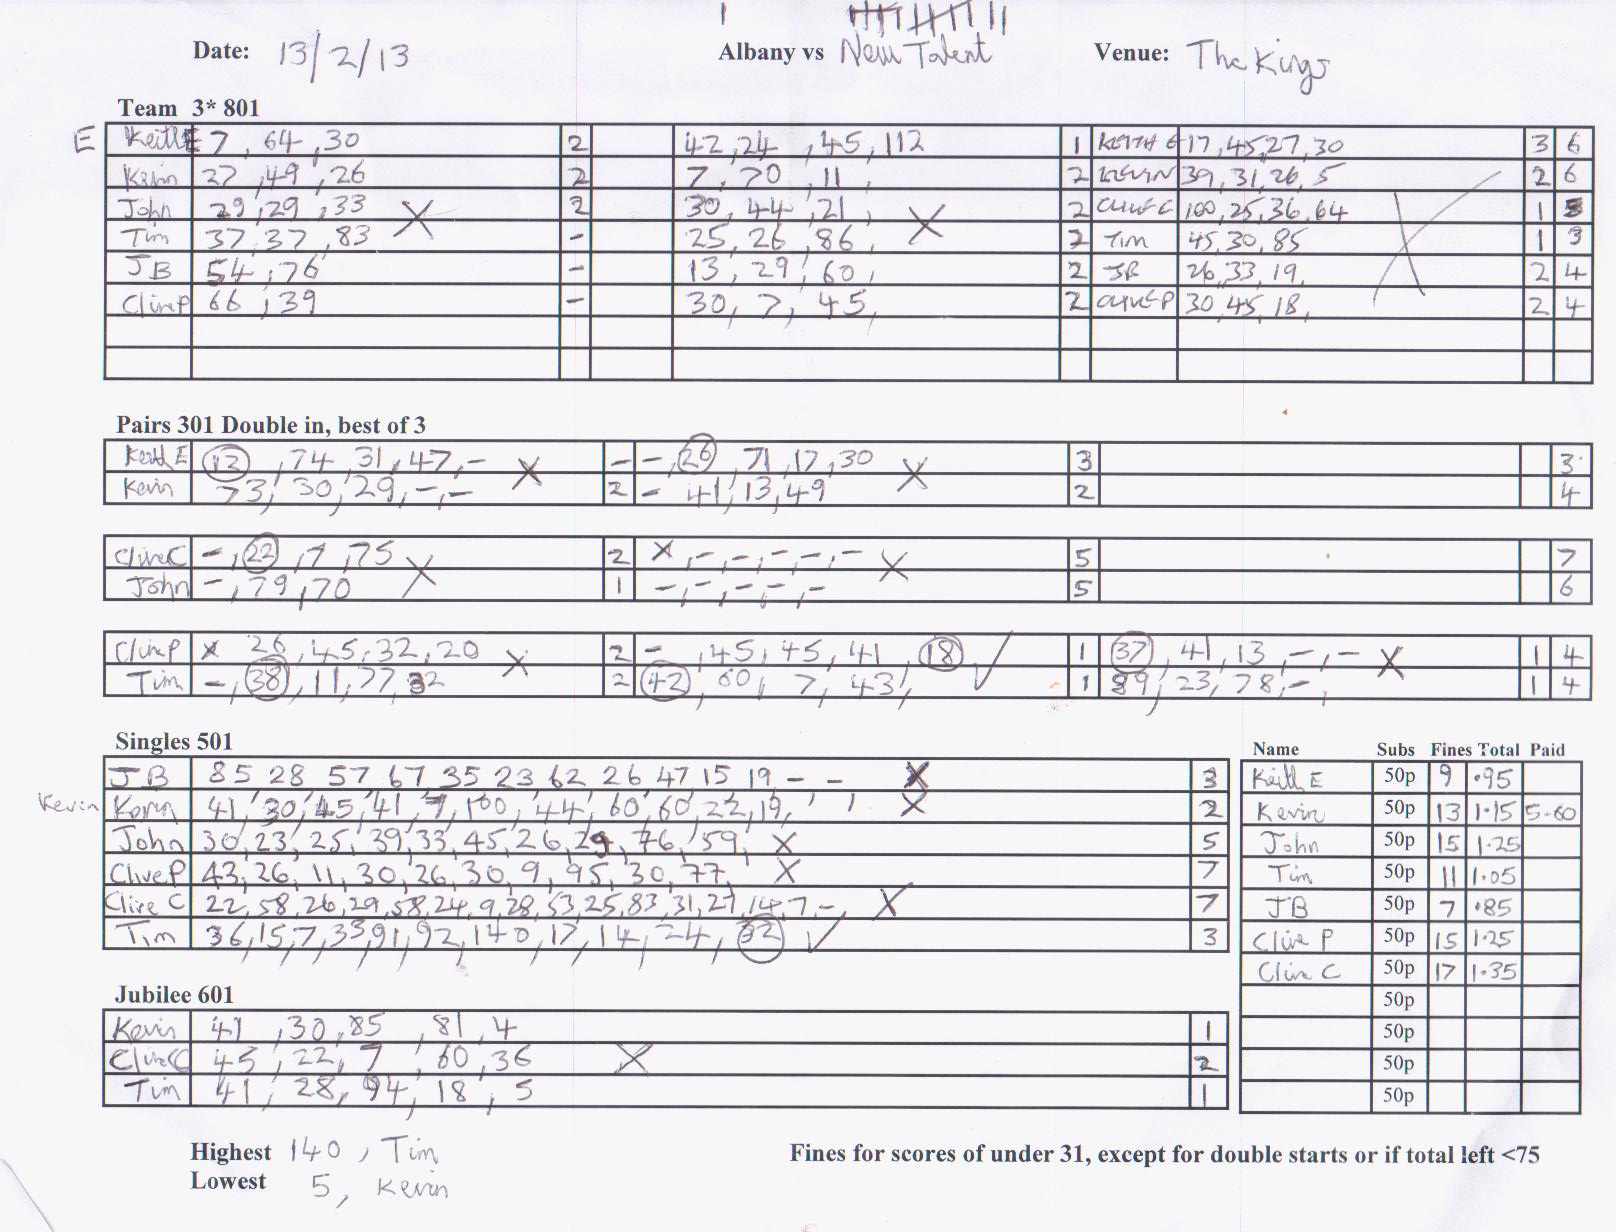 Date: 13/2/13 Albany vs New Talent Venue: The Kings
Team 3* 801
E Keith E 7, 64, 30 2 42, 24, 45, 112 1 KEITH E 17, 45, 27, 30 3 6
Kevin 27, 49, 26 2 7, 70, 11, 2 KEVIN 39, 31, 26, 5 2 6
John 29, 29, 33 X 2 30, 44, 21, X 2 CLIVE C 100, 25, 36, 64 1
Tim 37, 37, 83 - 25, 26, 86, 2 TIM 45, 30, 85 1 3
JB 54, 76 - 13, 29, 60, 2 JB 26, 33, 19, 2 4
Clive P 66, 39 - 30, 7, 45, 2 CLIVE P 30, 45, 18, 2 4
Pairs 301 Double in, best of 3
Keith E 12, 74, 31, 47, - X - -, 26, 71, 17, 30 X 3 3
Kevin 73, 30, 29, -, - 2 - 41, 13, 49 2 4
Clive C -, 22, 7, 75 X 2 X, -, -, -, -, - X 5 7
John -, 79, 70 1 -, -, -, -, - 5 6
Clive P X 26, 45, 32, 20 X 2 -, 45, 45, 41, 18 ✓ 1 37, 41, 13, -, - X 1 4
Tim -, 38, 11, 77, 32 2 42, 60, 7, 43, 1 39, 23, 78, -, 1 4
Singles 501
JB 85 28 57 67 35 23 62 26 47 15 19 - - X 3
Kevin Kevin 41, 30, 45, 41, 7, 100, 44, 60, 60, 22, 19, X 2
John 30, 23, 25, 39, 33, 45, 26, 29, 76, 59, X 5
Clive P 43, 26, 11, 30, 26, 30, 9, 95, 30, 77, X 7
Clive C 22, 58, 26, 29, 58, 24, 9, 28, 53, 25, 83, 31, 27, 14, 7, -, X 7
Tim 36, 15, 7, 33, 91, 92, 140, 17, 14, 24, 32 ✓ 3
Name Subs Fines Total Paid
Keith E 50p 9 .95
Kevin 50p 13 1.15 5-60
John 50p 15 1.25
Tim 50p 11 1.05
JB 50p 7 .85
Clive P 50p 15 1.25
Clive C 50p 17 1.35
50p
50p
50p
50p
Jubilee 601
Kevin 41, 30, 85, 81, 4 1
Clive C 45, 22, 7, 60, 36 X 2
Tim 41, 28, 94, 18, 5 1
Highest 140, Tim
Lowest 5, Kevin
Fines for scores of under 31, except for double starts or if total left <75